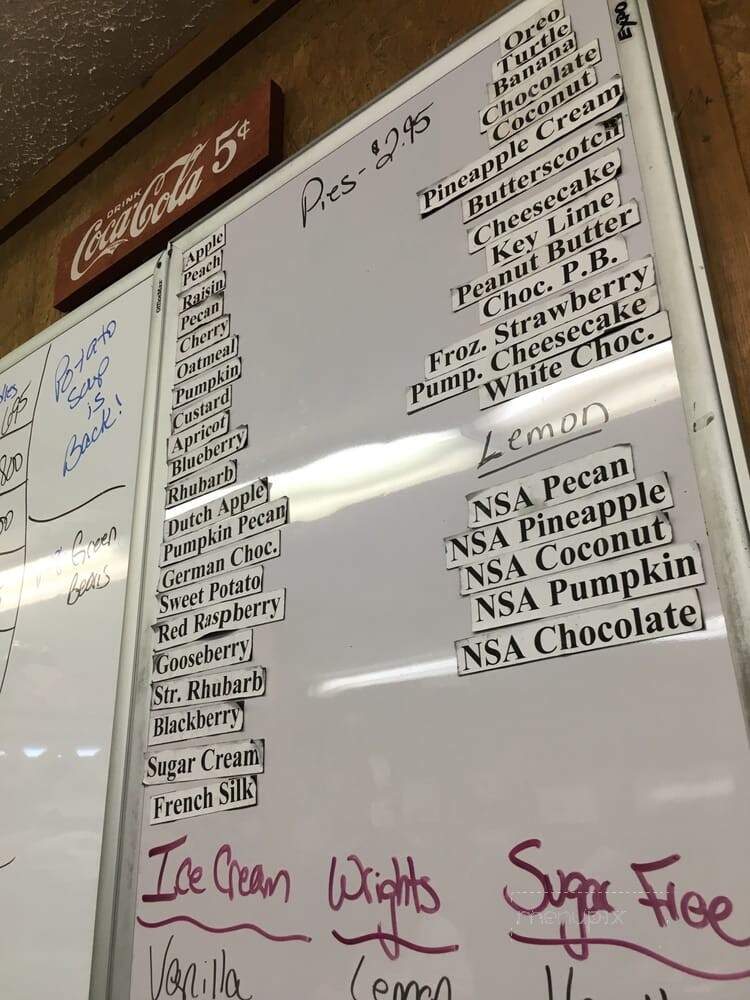 DRINK
Coca-Cola 5¢
Expo
Pies - $2.95
Apple
Peach
Raisin
Pecan
Cherry
Oatmeal
Pumpkin
Custard
Apricot
Blueberry
Rhubarb
Dutch Apple
Pumpkin Pecan
German Choc.
Sweet Potato
Red Raspberry
Gooseberry
Str. Rhubarb
Blackberry
Sugar Cream
French Silk
Oreo
Turtle
Banana
Chocolate
Coconut
Pineapple Cream
Butterscotch
Cheesecake
Key Lime
Peanut Butter
Choc. P.B.
Froz. Strawberry
Pump. Cheesecake
White Choc.
Lemon
NSA Pecan
NSA Pineapple
NSA Coconut
NSA Pumpkin
NSA Chocolate
Potato
Soup
is
Back!
Green
Beans
Ice Cream
Vanilla
Wrights
Lemon
Sugar Free
menupix